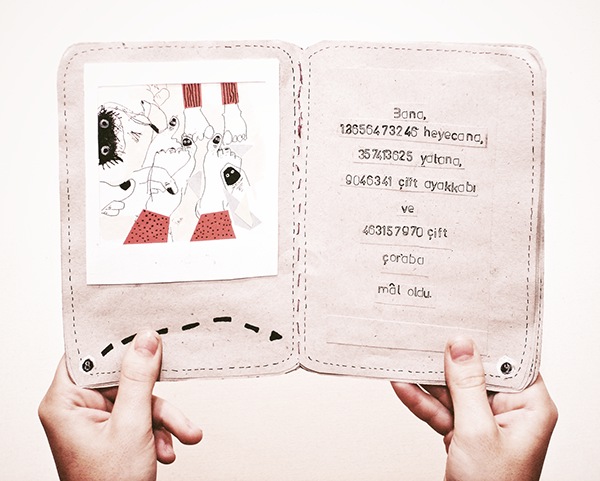 Bana,
13656473246 heyecana,
357413625 yalana,
9046341 çift ayakkabı
ve
463157970 çift
çoraba
mâl oldu.